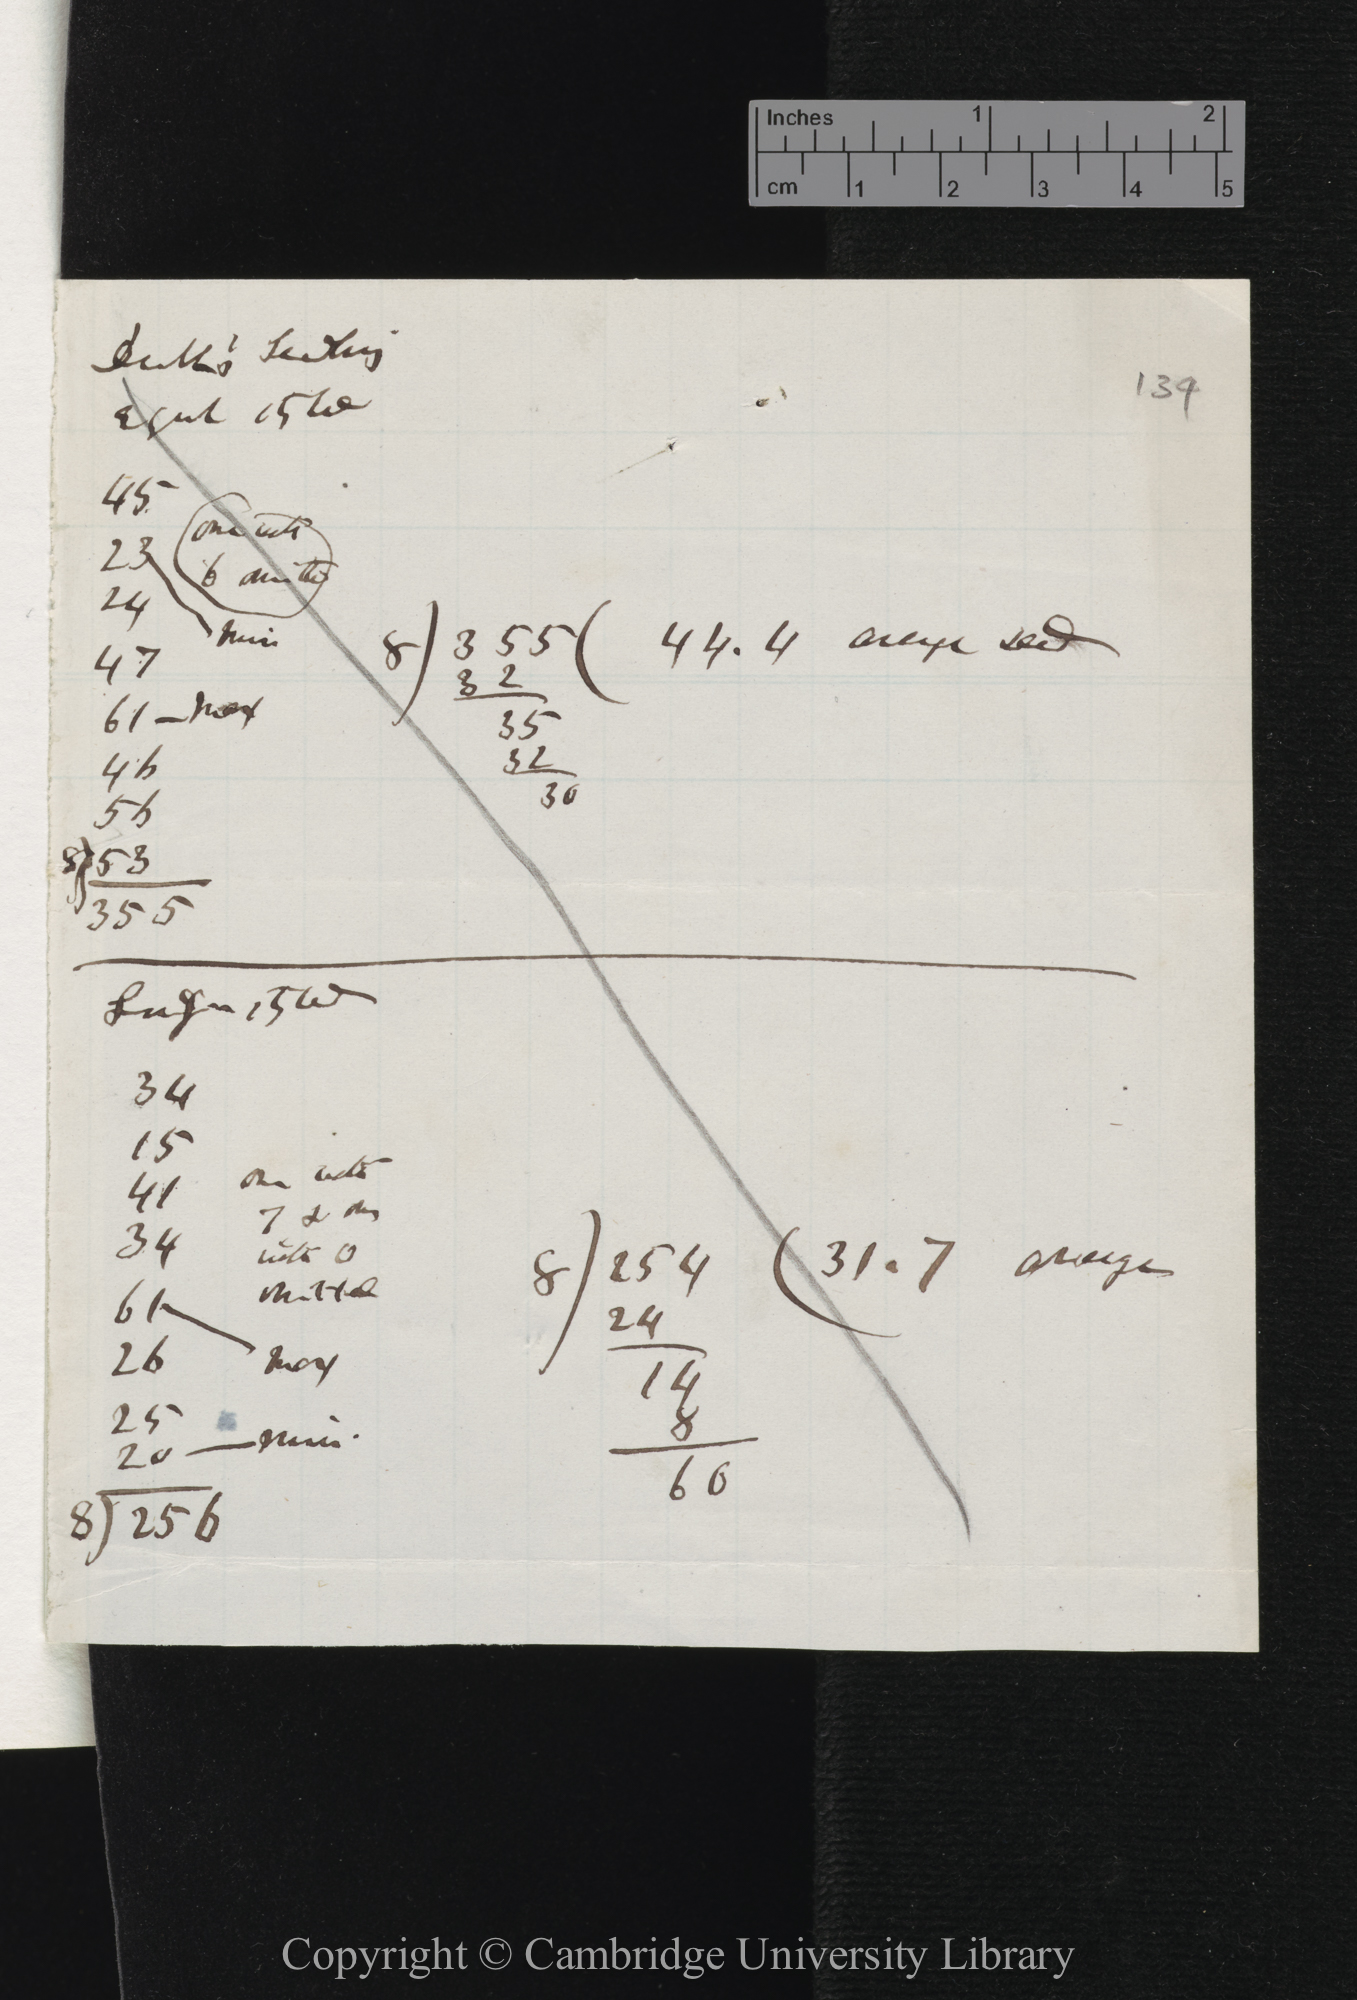 Inches 1 2
cm 1 2 3 4 5
139
Smith's Seedling
equal styled
45
23
one with
6 omitted
24
min
47
61 — Max
46
56
8) 53
355
8) 355 ( 44.4 average seed
32
35
32
30
Longer styled
34
15
41
one with
7 & one
with 0
omitted
34
61
26
max
25
20 — Mini
8) 256
8) 254 ( 31.7 average
24
14
8
60
Copyright © Cambridge University Library